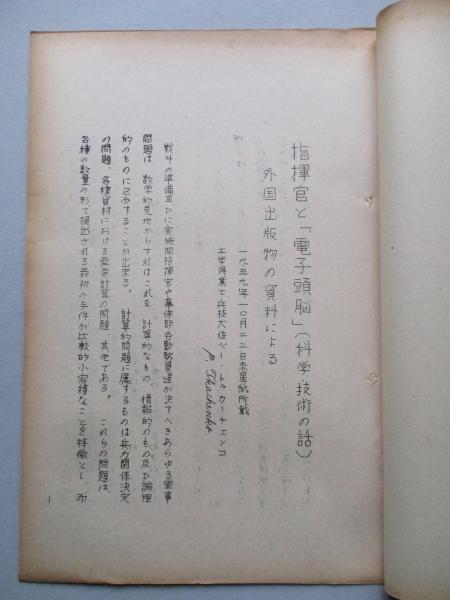 指揮官と「電子頭脳」（科学技術の話）
外国出版物の資料による
一九五九年一〇月二二日赤星紙所載
工学得業士、兵技大佐ペー・トゥカーチェンコ
P. Tkachenko
戦斗の準備並びに実施間指揮官や幕僚部各勤務員達が決すべきあらゆる軍事
問題は、数学的見地からすればこれを、計算的なもの、情報的のもの及び論理
的のものに区分することが出来る。 計算的問題に属するものは兵力関係決定
の問題、各種資材における需要計算の問題、其他である。 これらの問題は、
各種の数量の形で提出される最初の与件が比較的小容積なことを特徴とし、而
1